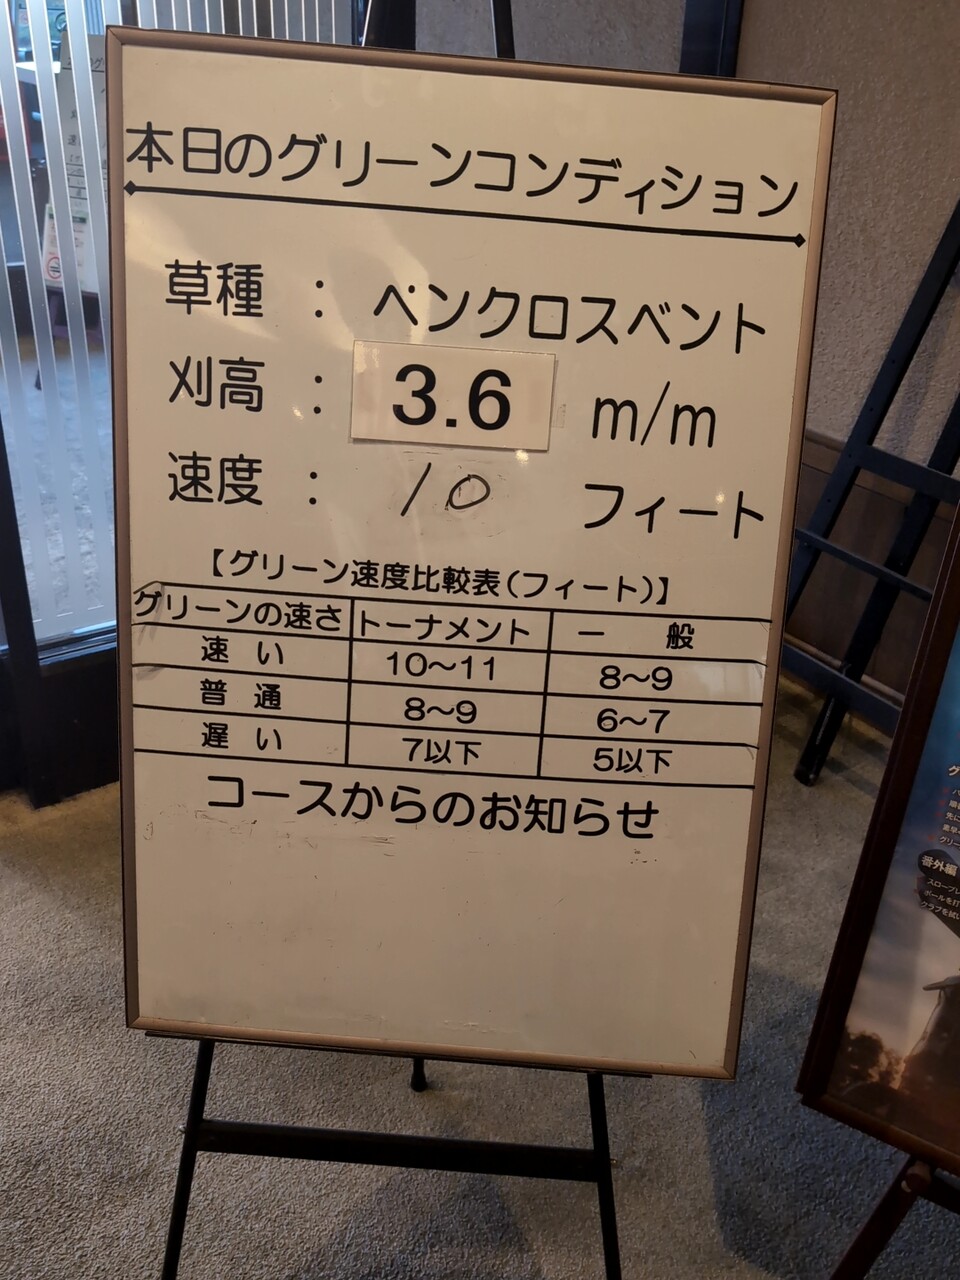 本日のグリーンコンディション
草種 : ペンクロスベント
刈高 : 3.6 m/m
速度 : 10 フィート
【グリーン速度比較表(フィート)】
グリーンの速さ トーナメント 一般
速い 10〜11 8〜9
普通 8〜9 6〜7
遅い 7以下 5以下
コースからのお知らせ
番外編